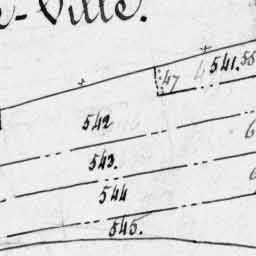 -Ville.
541.
47
542
543.
544
545.